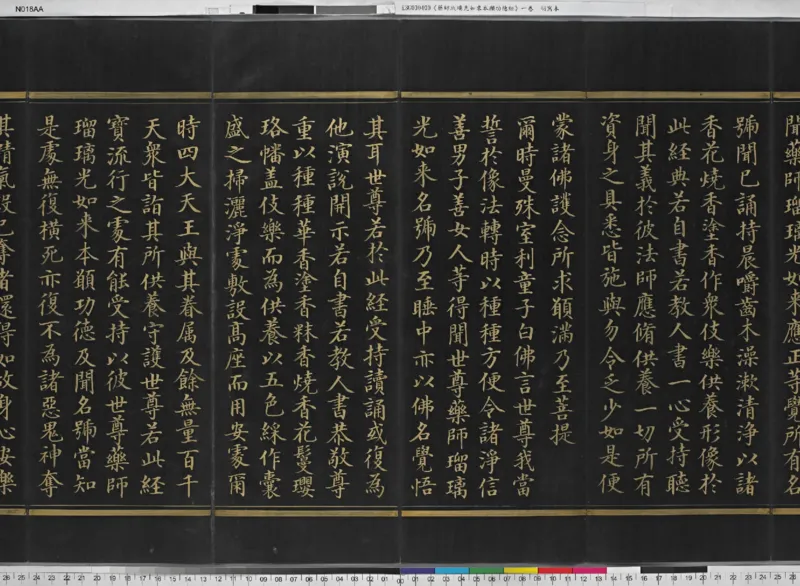 N018AA
聞藥師瑠璃光如来應正等覺所有名
號聞已誦持晨嚼齒木澡漱清淨以諸
香花燒香塗香作衆伎樂供養形像於
此經典若自書若教人書一心受持聽
聞其義於彼法師應脩供養一切所有
資身之具悉皆施與勿令乏少如是便
蒙諸佛護念所求願滿乃至菩提
爾時曼殊室利童子白佛言世尊我當
誓於像法轉時以種種方便令諸淨信
善男子善女人等得聞世尊藥師瑠璃
光如来名號乃至睡中亦以佛名覺悟
其耳世尊若於此經受持讀誦或復為
他演說開示若自書若教人書恭敬尊
重以種種華香塗香粖香燒香花鬘瓔
珞幡蓋伎樂而為供養以五色綵作囊
盛之掃灑淨處敷設髙座而用安處爾
時四大天王與其眷属及餘無量百千
天衆皆詣其所供養守護世尊若此經
寶流行之處有能受持以彼世尊藥師
瑠璃光如来本願功德及聞名號當知
是處無復橫死亦復不為諸惡鬼神奪
其精氣設已奪者還得如故身心安樂